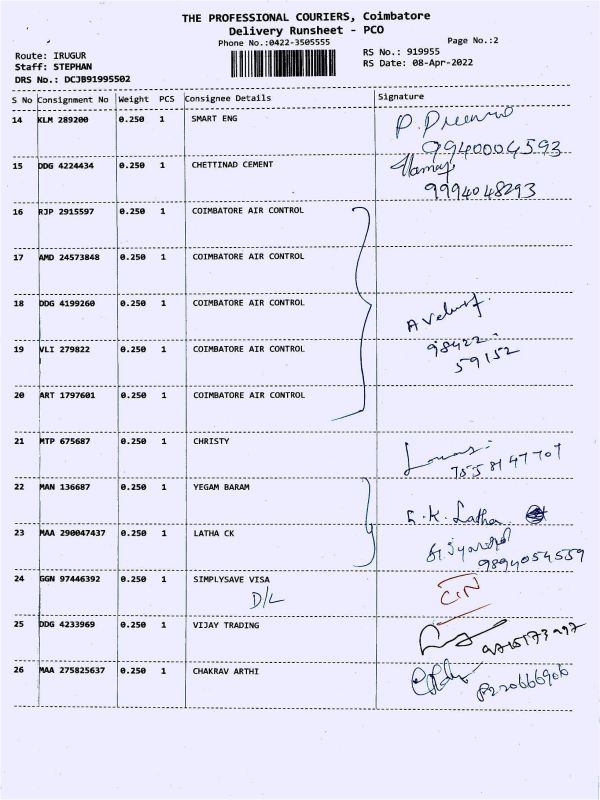 THE PROFESSIONAL COURIERS, Coimbatore
Delivery Runsheet - PCO
Phone No.:0422-3505555
Page No.:2
Route: IRUGUR
RS No.: 919955
Staff: STEPHAN
RS Date: 08-Apr-2022
DRS No.: DCJB91995502
S No Consignment No Weight PCS Consignee Details Signature
14 KLM 289200 0.250 1 SMART ENG P.
9940004593
15 DDG 4224434 0.250 1 CHETTINAD CEMENT
9994048293
16 RJP 2915597 0.250 1 COIMBATORE AIR CONTROL
17 AMD 24573848 0.250 1 COIMBATORE AIR CONTROL
18 DDG 4199260 0.250 1 COIMBATORE AIR CONTROL
A
98422
19 VLI 279822 0.250 1 COIMBATORE AIR CONTROL
59152
20 ART 1797601 0.250 1 COIMBATORE AIR CONTROL
21 MTP 675687 0.250 1 CHRISTY
7558147707
22 MAN 136687 0.250 1 YEGAM BARAM
K. Latha
23 MAA 290047437 0.250 1 LATHA CK
9894054559
24 GGN 97446392 0.250 1 SIMPLYSAVE VISA
D/L
25 DDG 4233969 0.250 1 VIJAY TRADING
26 MAA 275825637 0.250 1 CHAKRAV ARTHI
8220666906